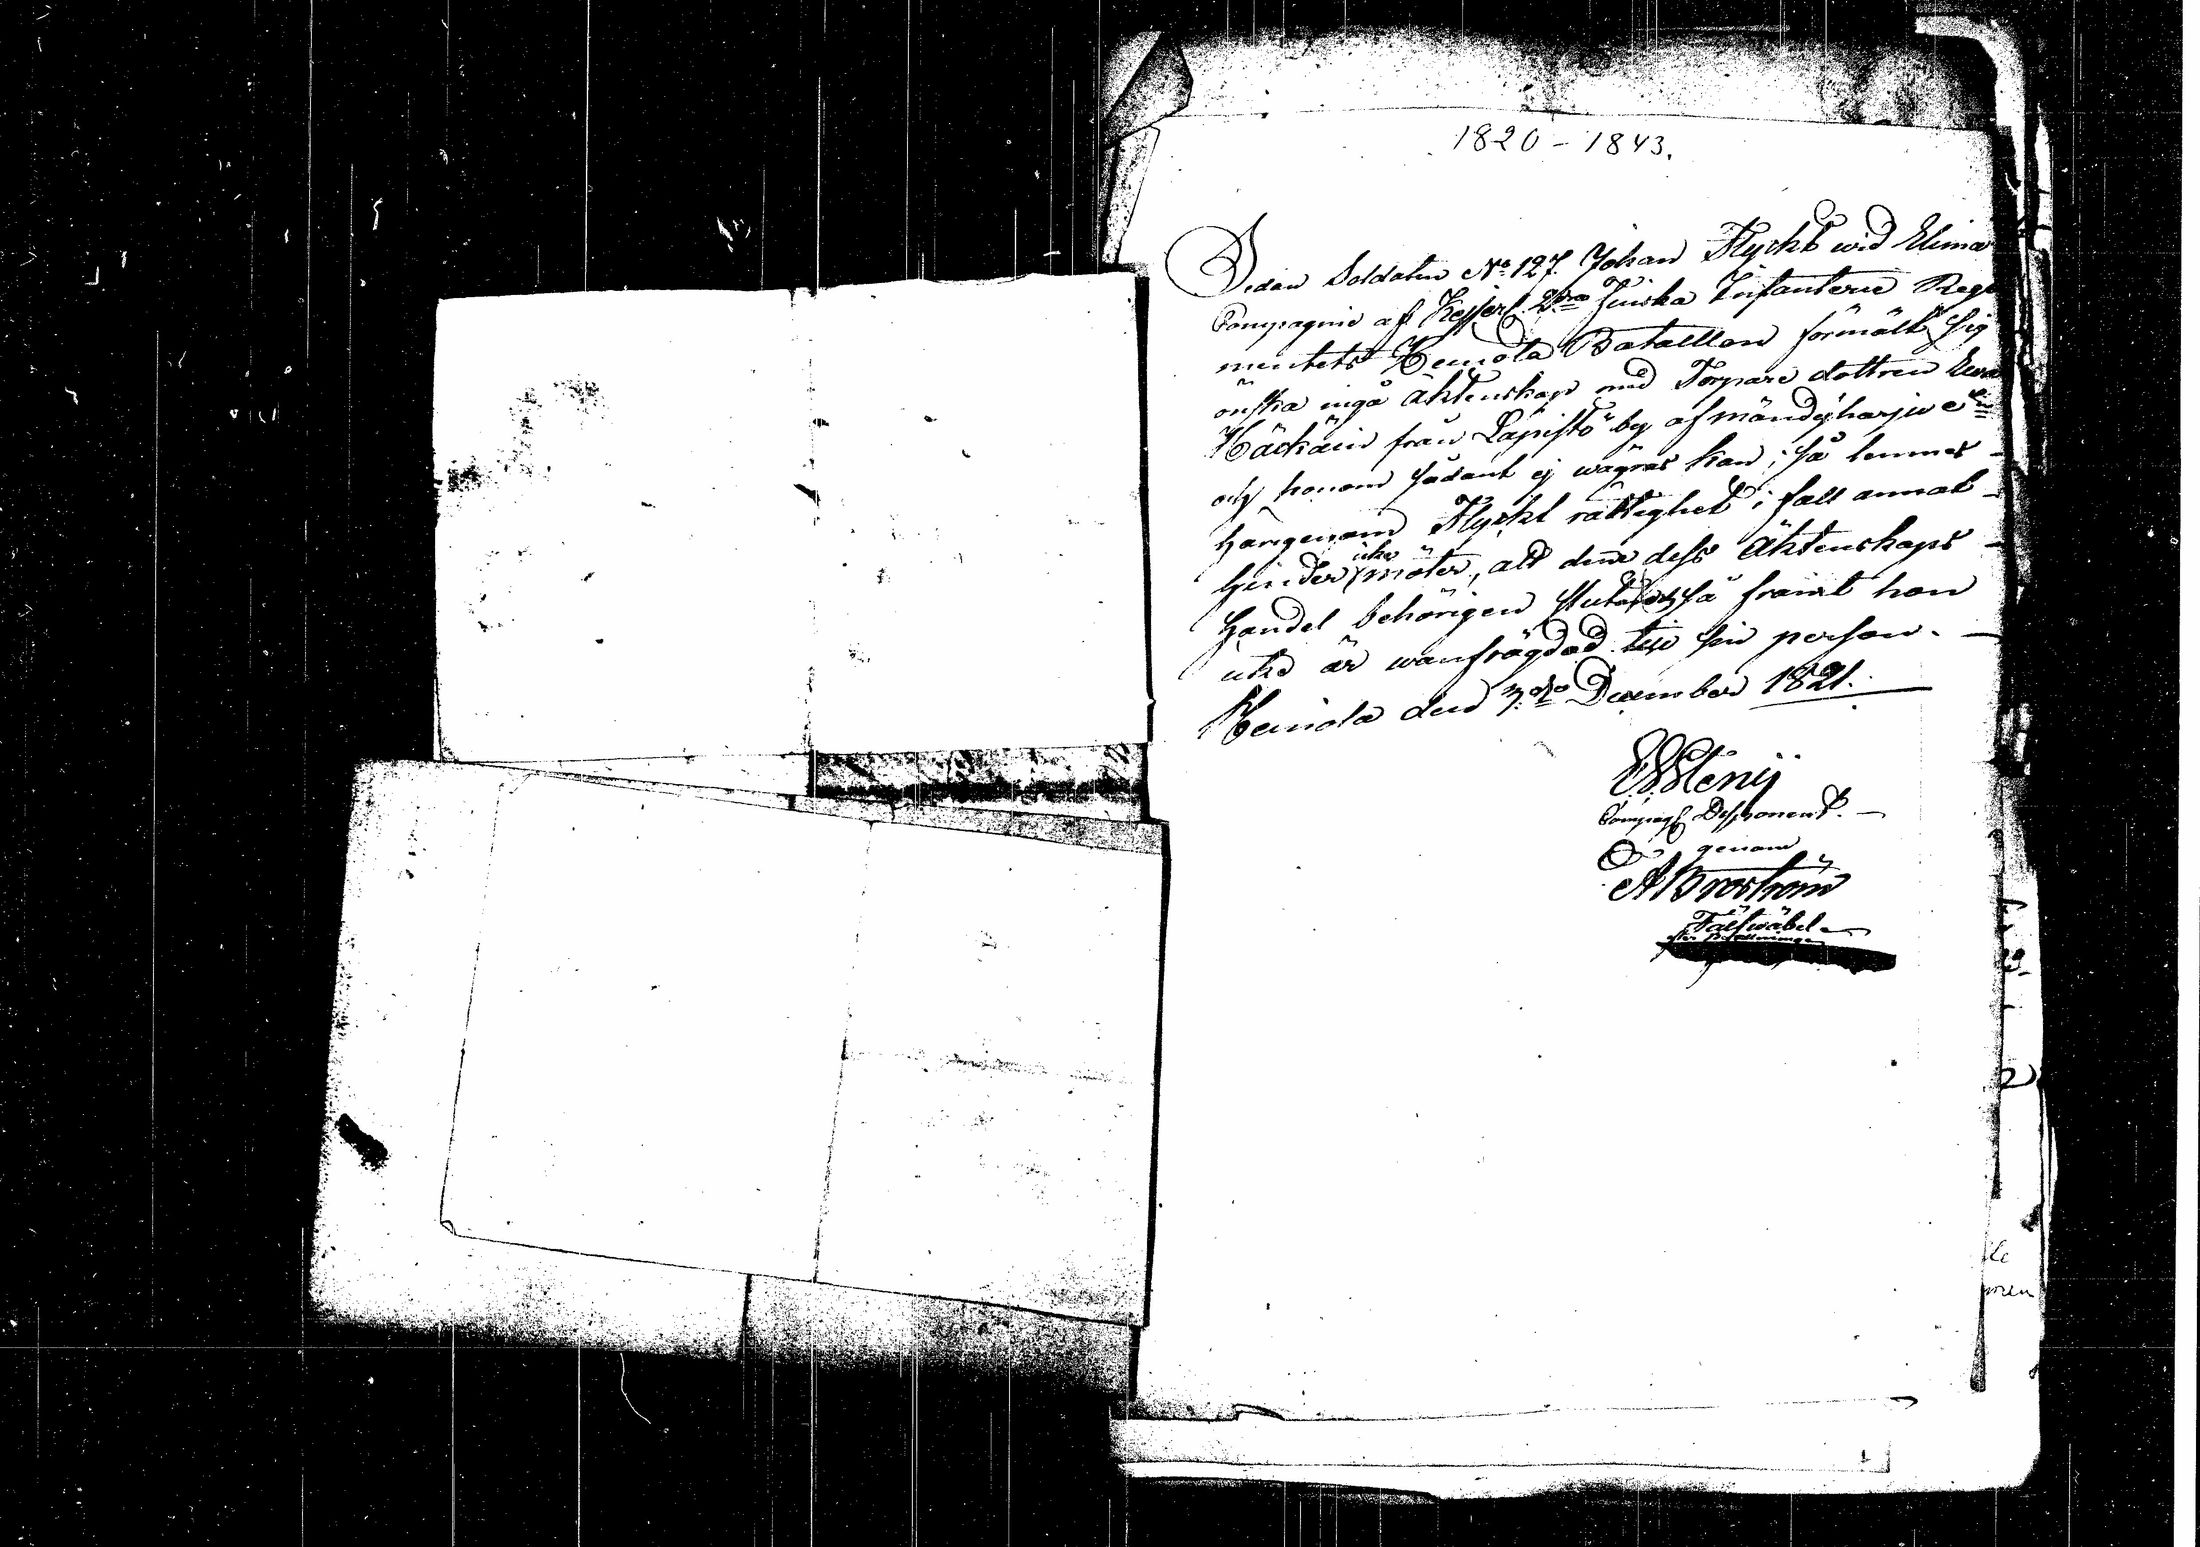 1820 - 1843.
Sedan Soldaten No 127. Johan Flyckt wid Elimä
Compagnie af Kejserl. 2dra Finska Infanterie Rege
mentets Heinola Bataillon förmält sig
önska ingå Äktenskap med Torpare dottren Ewa
från Lapistö by af Mändyharju
och honom sådant ej wägras kan; så lemnas
härigenom Flyckt rättighet i fall annat
hinder icke möter, att denne dess Äktenskaps
handel behörigen sluta så framt hon
icke är wanfrägdad till sin person.
Heinola den 3dje December 1821.
Compag Disponent.
genom
A Broström
Fältwäbel
efter Befallning
le
men